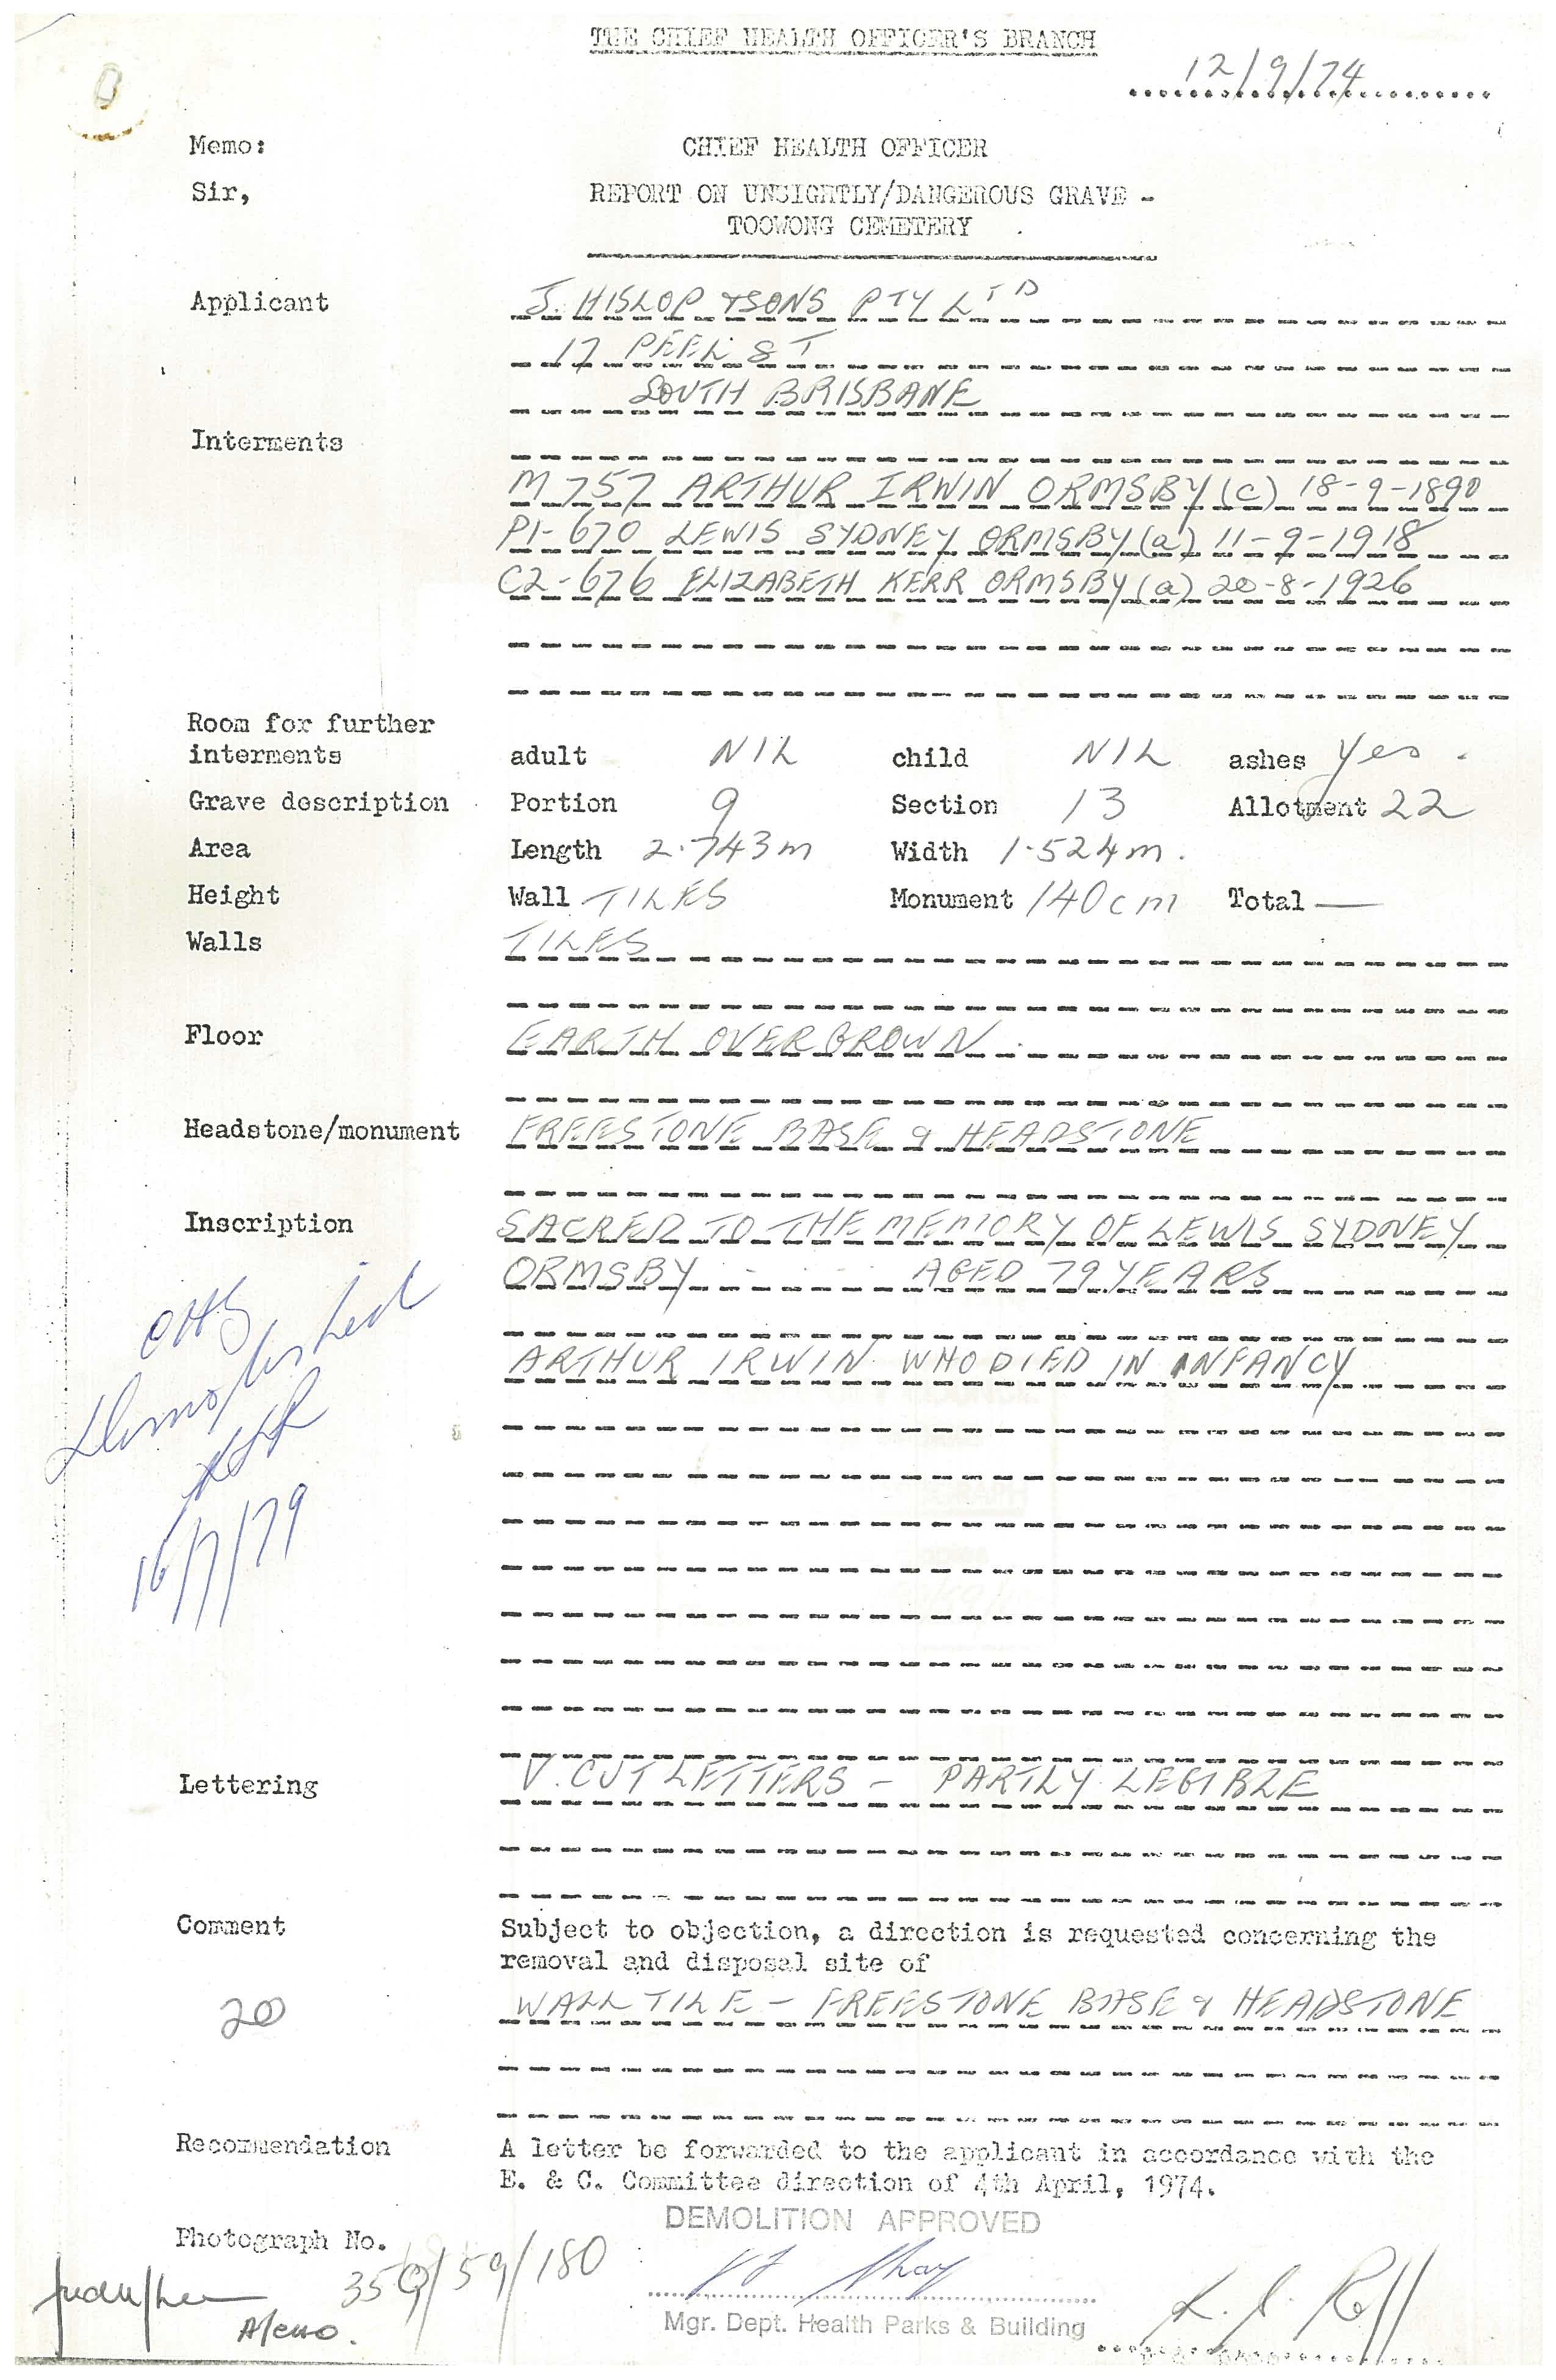 THE CHIEF HEALTH OFFICER'S BRANCH
12/9/74
Memo: CHIEF HEALTH OFFICER
Sir, REPORT ON UNSIGHTLY/DANGEROUS GRAVE -
TOOWONG CEMETERY
Applicant J. HISLOP & SONS PTY LTD
17 PEEL ST
SOUTH BRISBANE
Interments
M 757 ARTHUR IRWIN ORMSBY (c) 18-9-1890
P1-670 LEWIS SYDNEY ORMSBY (a) 11-9-1918
C2-676 ELIZABETH KERR ORMSBY (a) 20-8-1926
Room for further
interments adult NIL child NIL ashes yes.
Grave description Portion 9 Section 13 Allotment 22
Area Length 2.743m Width 1.524m.
Height Wall TILES Monument 140cm Total —
Walls TILES
Floor EARTH OVERGROWN.
Headstone/monument FREESTONE BASE & HEADSTONE
Inscription SACRED TO THE MEMORY OF LEWIS SYDNEY
ORMSBY - - - AGED 79 YEARS
ARTHUR IRWIN WHO DIED IN INFANCY
Demolished
16/7/79
Lettering V. CUT LETTERS - PARTLY LEGIBLE
Comment Subject to objection, a direction is requested concerning the
removal and disposal site of
20 WALL TILE - FREESTONE BASE & HEADSTONE
Recommendation A letter be forwarded to the applicant in accordance with the
E. & C. Committee direction of 4th April, 1974.
DEMOLITION APPROVED
Photograph No. 359/59/180
Mgr. Dept. Health Parks & Building